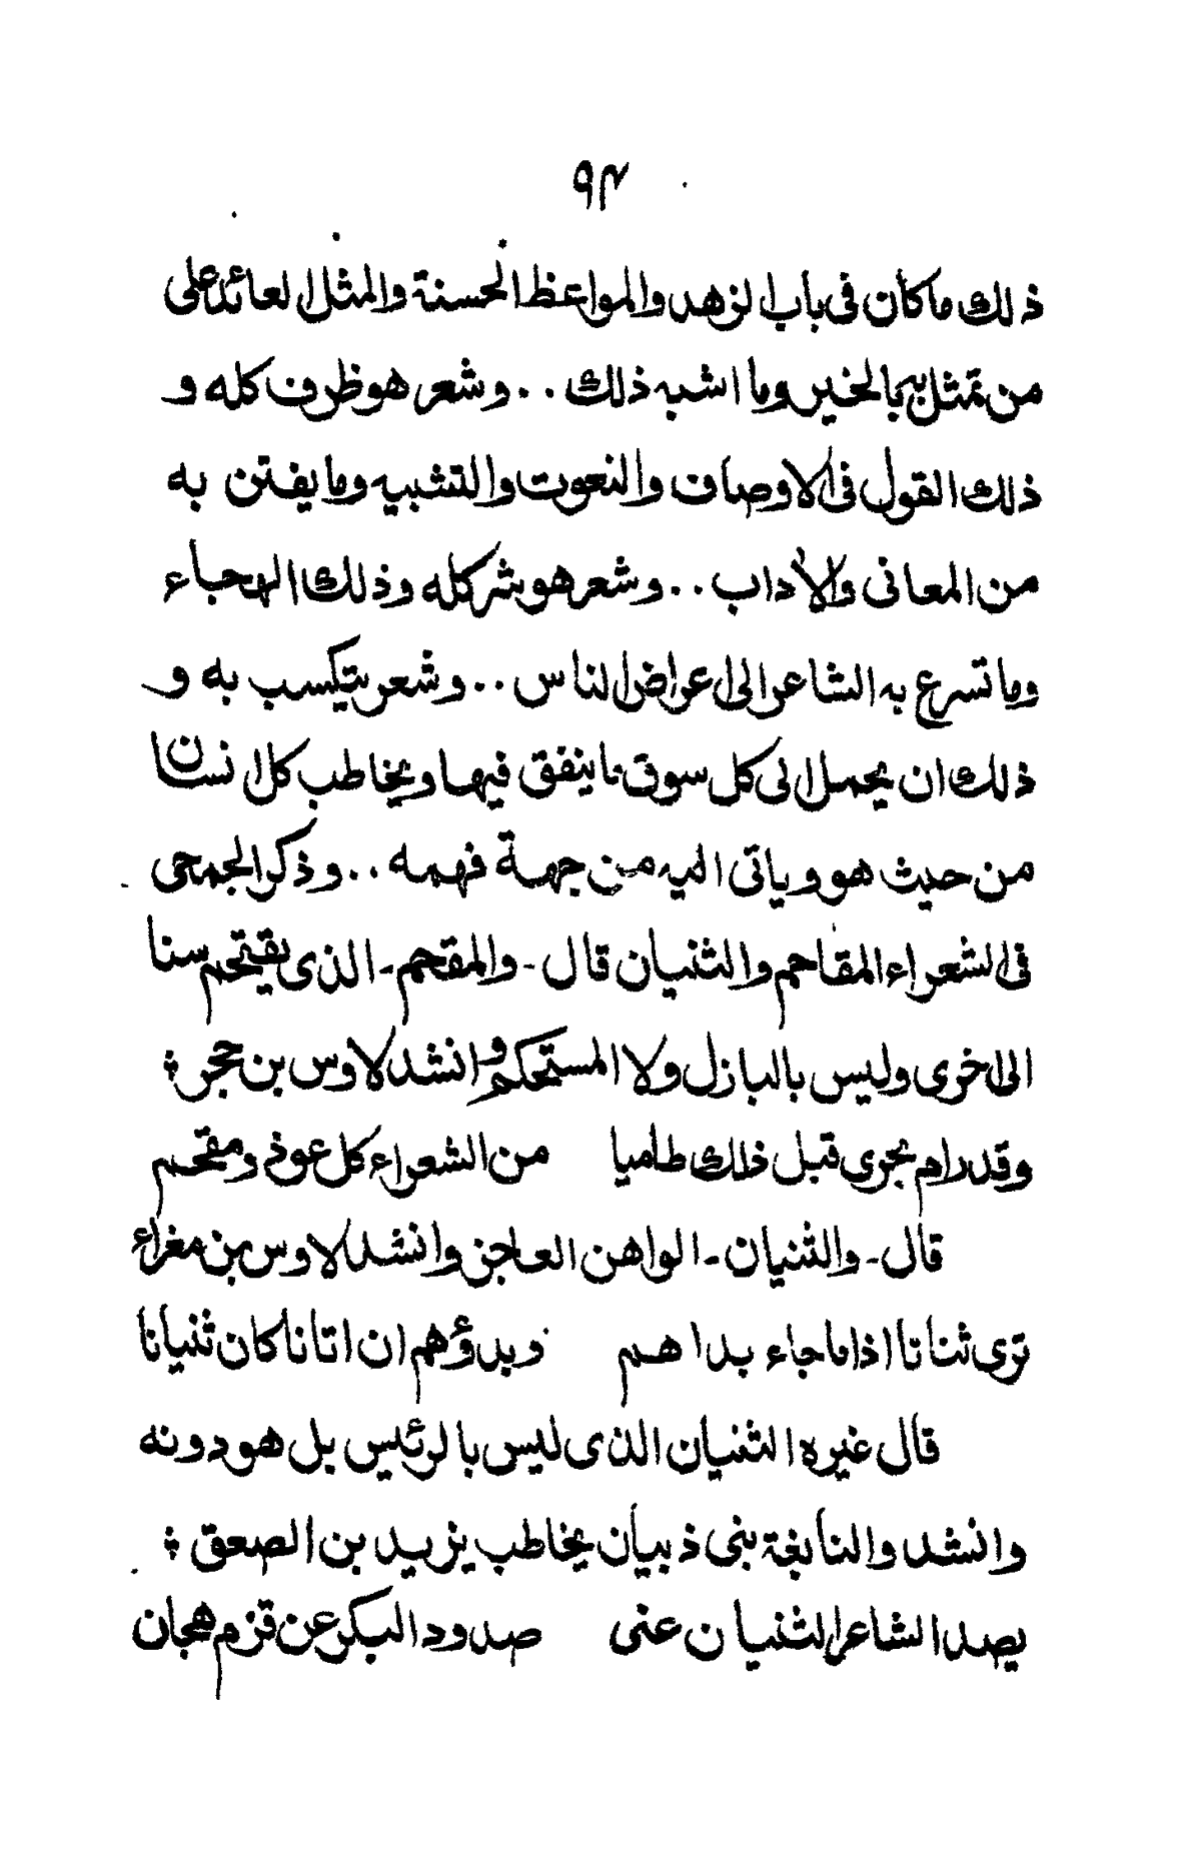 ٩٣
ذلك ماكان فى باب الزهد والمواعظ الحسنة والمثل العائد على
من تمثل به بالخير وما اشبه ذلك .. وشعر هو ظرف كله و
ذلك القول فى الاوصاف والنعوت والتشبيه وما يفتن به
من المعانى والاداب .. وشعر هو شر كله وذلك الهجاء
وما تسرع به الشاعر الى اعراض الناس .. وشعر يتكسب به و
ذلك ان يحمل الى كل سوق ما ينفق فيها ويخاطب كل انسان
من حيث هو وياتى اليه من جهة فهمه .. وذكر الجمحى
فى الشعراء المقاحم والثنيان قال - والمقحم - الذى يقتحم سنا
الى اخرى وليس بالبازل ولا المستحكم وانشد لاوس بن حجر ؛
وقد رام بحرى قبل ذلك طاميا من الشعراء كل عوذ ومقحم
قال - والثنيان - الواهن العاجز وانشد لاوس بن مغراء
ترى ثنانا اذا ما جاء بداهم وبدؤهم ان اتانا كان ثنيانا
قال غيره الثنيان الذى ليس بالرئيس بل هو دونه
وانشد والنابغة بنى ذبيان يخاطب يزيد بن الصعق ؛
يصد الشاعر الثنيان عنى صدود البكر عن قرم هجان